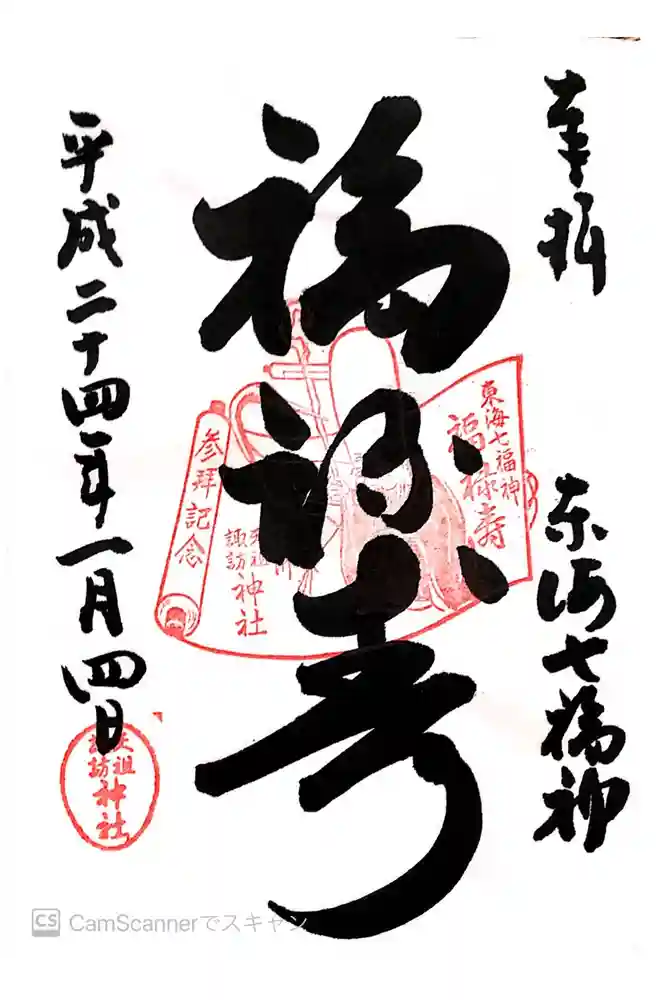 奉拝
東海七福神
福禄寿
平成二十四年一月四日
東海七福神
福禄寿
天祖
諏訪
神社
参拝記念
天祖
諏訪
神社
CS CamScannerでスキャン